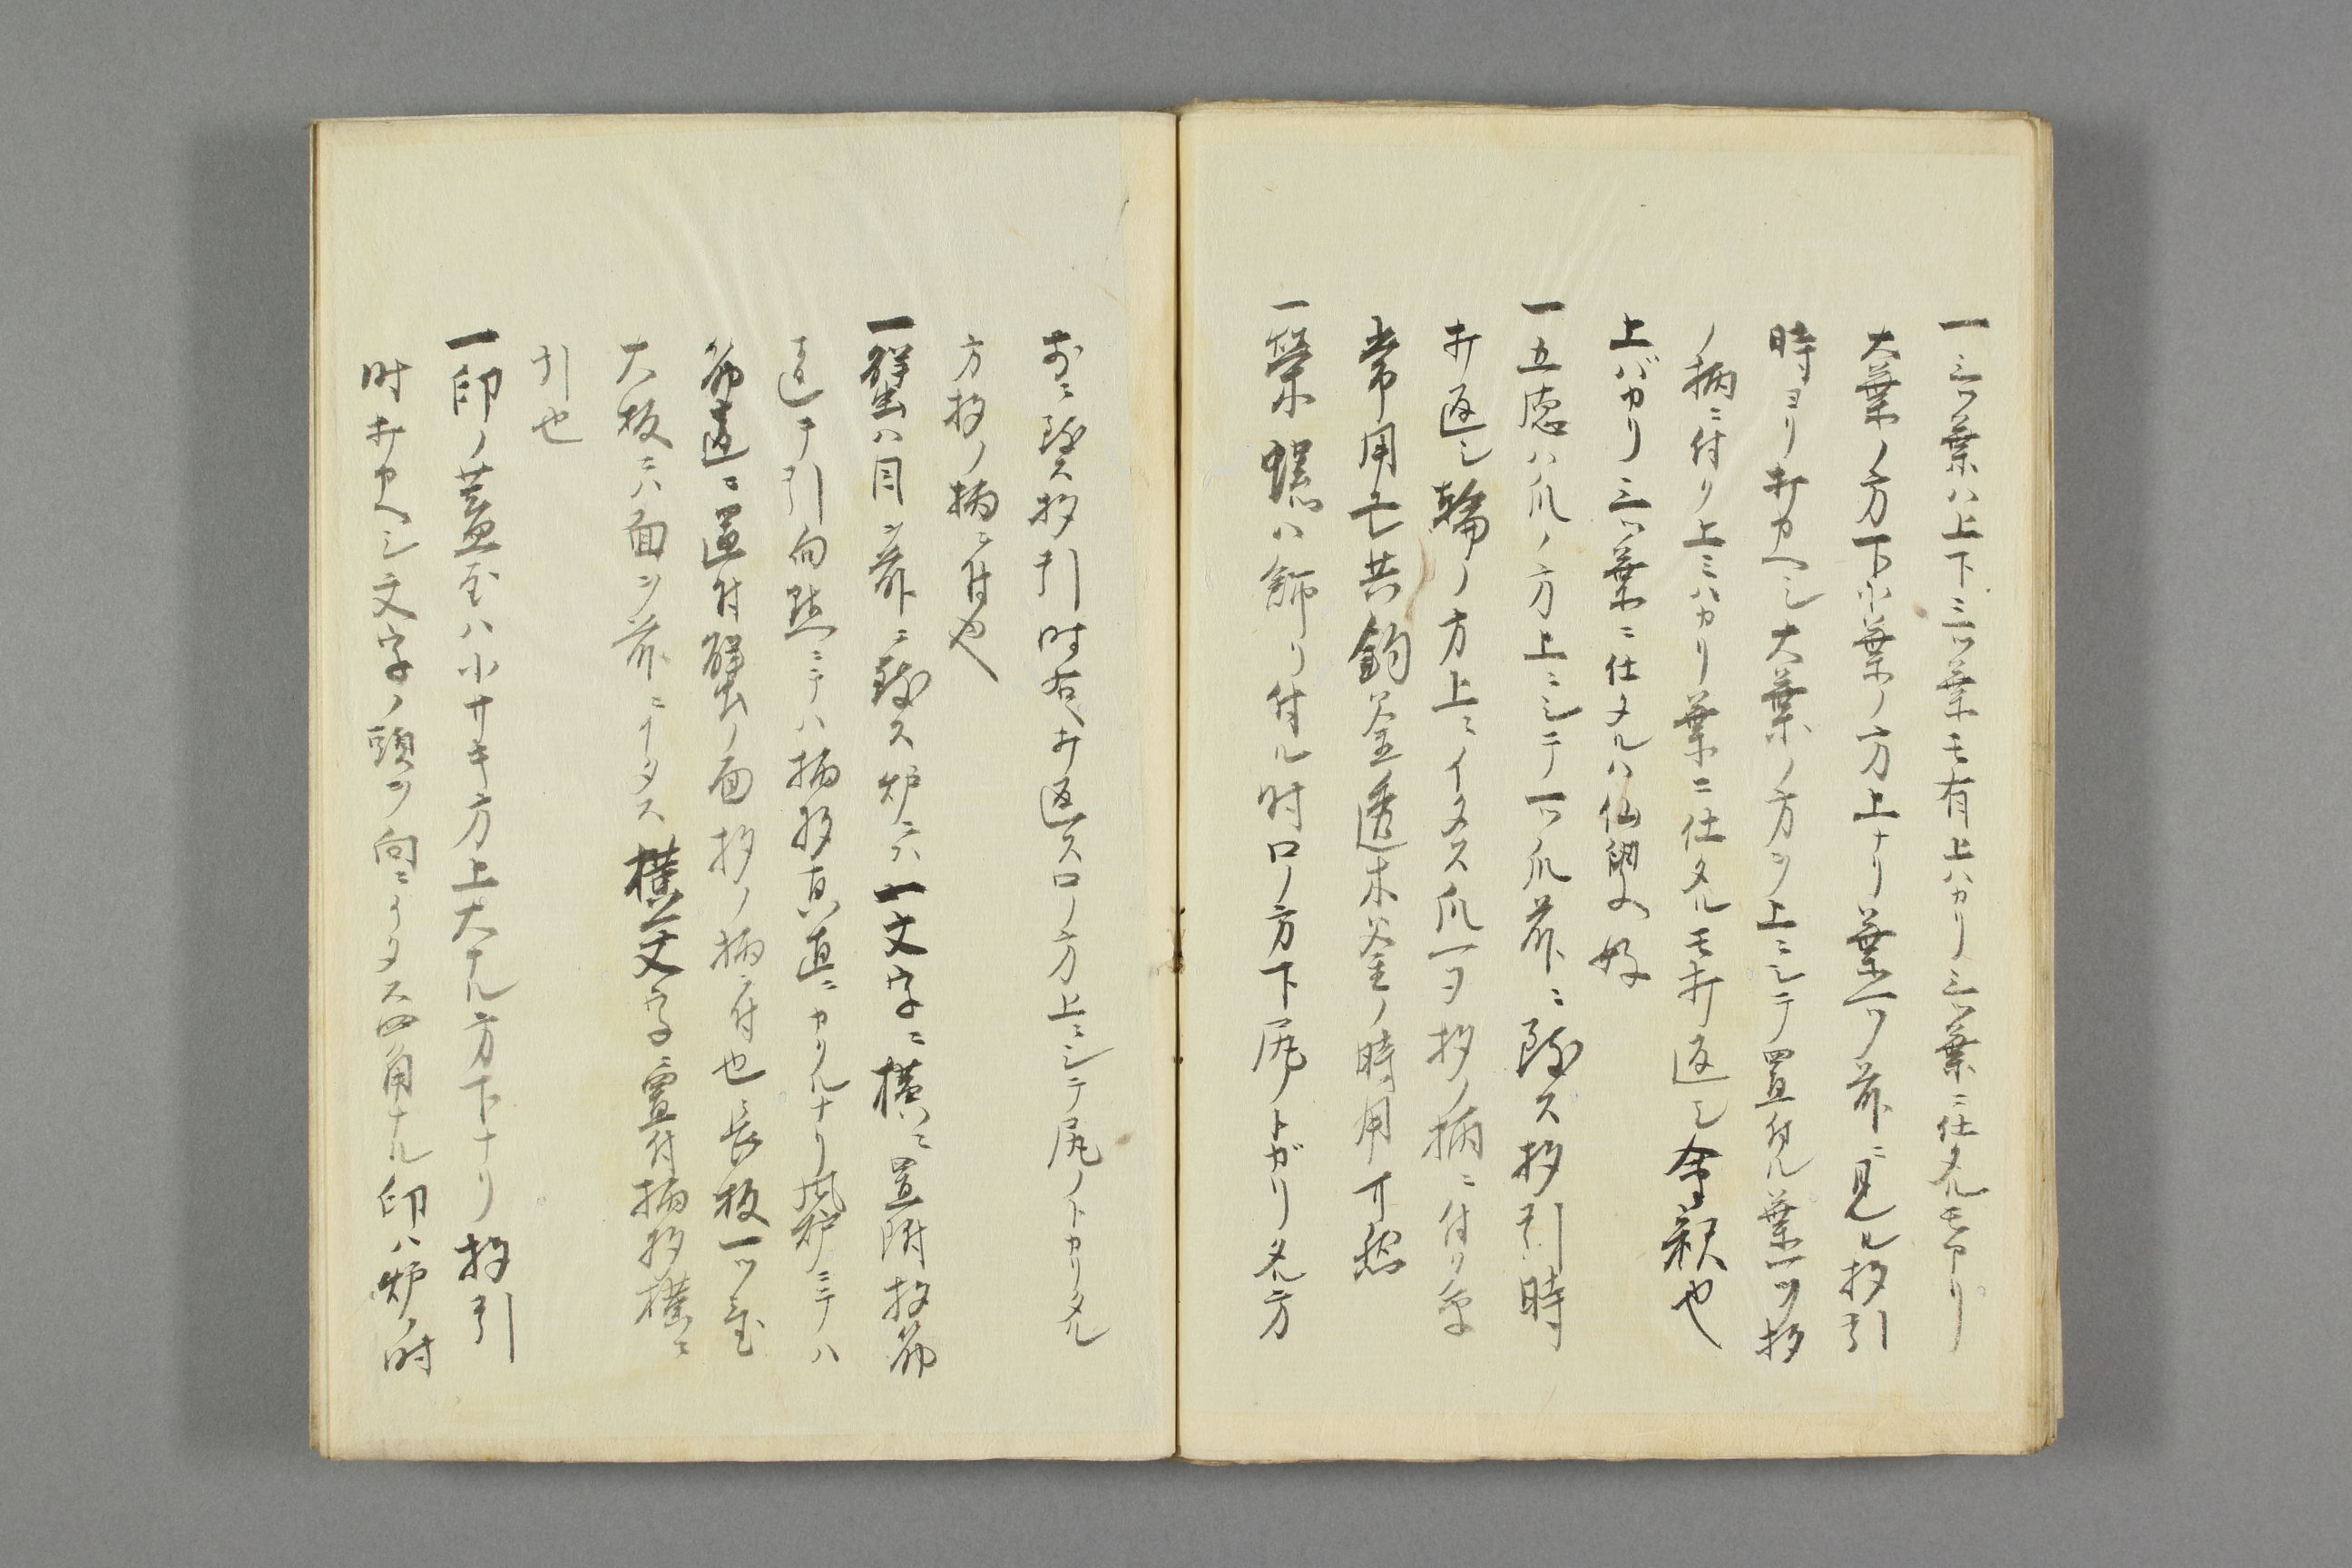 一三ツ葉ハ上下三ツ葉モ有上ハカリ三ツ葉ニ仕タルモアリ
大葉ノ方下小葉ノ方上ナリ葉一ツ前ニ見ル杓引
時ヨリ打カヘシ大葉ノ方ヲ上ニシテ置付ル葉一ツ杓
ノ柄ニ付リ上ミハカリ葉ニ仕タルモ打返シ会釈也
上バカリ三ツ葉ニ仕タルハ仙叟好
一五徳ハ爪ノ方上ニシテ一ツ爪前ニ致ス杓引時
打返シ輪ノ方上ニイタス爪一ヲ杓ノ柄ニ付ケ
常用共釣釜透木釜ノ時用
一栄螺ハ飾リ付ル時口ノ方下尻ノトガリタル方
前ニ致ス杓引時右ヘ打返ス口ノ方上ニシテ尻ノトカリタル
方杓ノ柄ニ付也
一蟹ハ目ヲ前ニ致ス炉ニハ一文字ニ横ニ置附杓筋
違キ引向點ニテハ柄杓真直ニカヽルナリ風炉ニテハ
筋違ニ置付蟹ノ面杓ノ柄ニ付也長板一ツ置
大板ニハ面ヲ前ニイタス横一文字ニ置付柄杓横ニ
引也
一印ノ蓋置ハ小サキ方上大ナル方下ナリ杓引
時打カヘシ文字ノ頭ヲ向ニイタス四角ナル印ハ炉ノ時